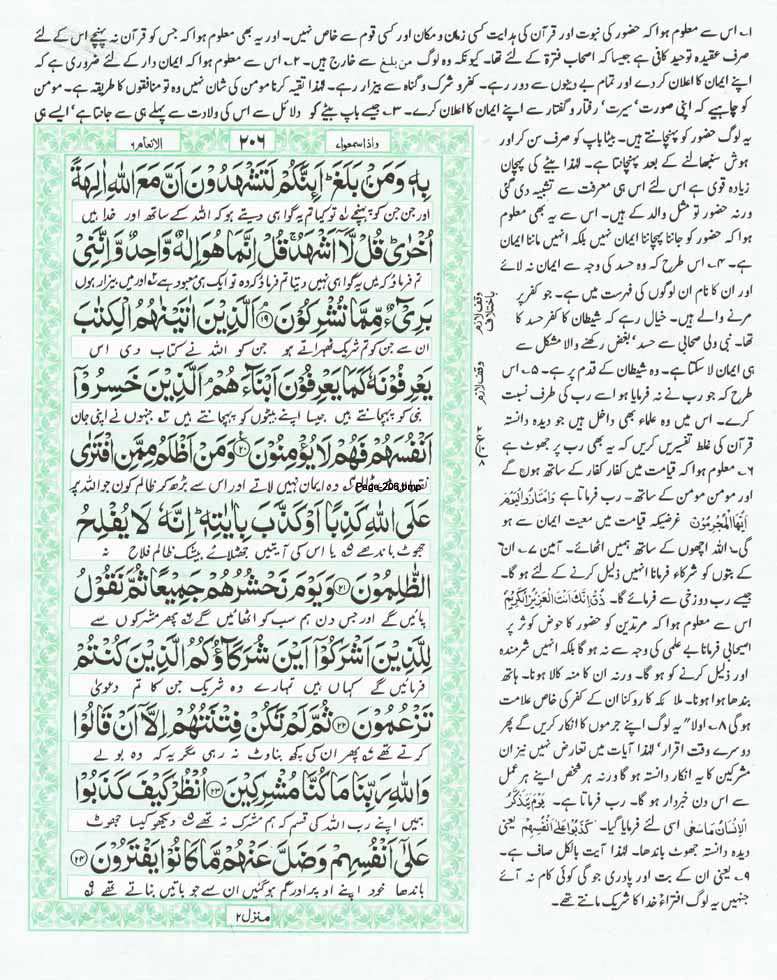 ۱۔ اس سے معلوم ہوا کہ حضور کی نبوت اور قرآن کی ہدایت کسی زمان و مکان اور کسی قوم سے خاص نہیں۔ اور یہ بھی معلوم ہوا کہ جس کو قرآن نہ پہنچے اس کے لئے
صرف عقیدہ توحید کافی ہے جیسا کہ اصحاب فترۃ کے لئے تھا۔ کیونکہ وہ لوگ من بلغ سے خارج ہیں۔ ۲۔ اس سے معلوم ہوا کہ ایمان دار کے لئے ضروری ہے کہ
اپنے ایمان کا اعلان کر دے اور تمام بے دینوں سے دور رہے۔ کفر و شرک و گناہ سے بیزار رہے۔ لہذا تقیہ کرنا مومن کی شان نہیں وہ تو منافقوں کا طریقہ ہے۔ مومن
کو چاہیے کہ اپنی صورت' سیرت' رفتار و گفتار سے اپنے ایمان کا اعلان کرے۔ ۳۔ جیسے باپ بیٹے کو دلائل سے اس کی ولادت سے پہلے ہی سے جانتا ہے' ایسے ہی
یہ لوگ حضور کو پہنچانتے ہیں۔ بیٹا باپ کو صرف سن کر اور
ہوش سنبھالنے کے بعد پہنچانتا ہے۔ لہذا بیٹے کی پہچان
زیادہ قوی ہے اس لئے اس ہی معرفت سے تشبیہ دی گئی
ورنہ حضور تو مثل والد کے ہیں۔ اس سے یہ بھی معلوم
ہوا کہ حضور کو جاننا پہچاننا ایمان نہیں بلکہ انہیں ماننا ایمان
ہے۔ ۴۔ اس طرح کہ وہ حسد کی وجہ سے ایمان نہ لائے
اور ان کا نام ان لوگوں کی فہرست میں ہے۔ جو کفر پر
مرنے والے ہیں۔ خیال رہے کہ شیطان کا کفر حسد کا
تھا۔ نبی ولی صحابی سے حسد' بغض رکھنے والا مشکل سے
ہی ایمان لا سکتا ہے۔ وہ شیطان کے قدم پر ہے۔ ۵۔ اس
طرح کہ جو رب نے نہ فرمایا ہو اسے رب کی طرف نسبت
کرے۔ اس میں وہ علماء بھی داخل ہیں جو دیدہ دانستہ
قرآن کی غلط تفسیریں کریں کہ یہ بھی رب پر جھوٹ ہے
۶۔ معلوم ہوا کہ قیامت میں کفار کفار کے ساتھ ہوں گے
اور مومن مومن کے ساتھ۔ رب فرماتا ہے وَامْتَازُوا الْيَوْمَ
اَيُّهَا الْمُجْرِمُوْنَ غرضیکہ قیامت میں معیت ایمان سے ہو
گی۔ اللہ اچھوں کے ساتھ ہمیں اٹھائے۔ آمین ۷۔ ان
کے بتوں کو شرکاء فرمانا انہیں ذلیل کرنے کے لئے ہو گا۔
جیسے رب دوزخی سے فرمائے گا۔ ذُقْ اِنَّكَ اَنْتَ الْعَزِيْزُ الْكَرِيْمُ
اس سے معلوم ہوا کہ مرتدین کو حضور کا حوض کوثر پر
اصیحابی فرمانا بے علمی کی وجہ سے نہ ہو گا بلکہ انہیں شرمندہ
اور ذلیل کرنے کو ہو گا۔ ورنہ ان کا منہ کالا ہونا۔ ہاتھ
بندھا ہوا ہونا۔ ملائکہ کا روکنا ان کے کفر کی خاص علامت
ہوگی ۸۔ اولا" یہ لوگ اپنے جرموں کا انکار کریں گے پھر
دوسرے وقت اقرار' لہذا آیات میں تعارض نہیں نیز ان
مشرکین کا یہ انکار دانستہ ہو گا ورنہ ہر شخص اپنے ہر عمل
سے اس دن خبردار ہو گا۔ رب فرماتا ہے۔ يَوْمَ يَتَذَكَّرُ
الْاِنْسَانُ مَا سَعٰى اسی لئے فرمایا گیا۔ كَذَبُوْا عَلٰٓى اَنْفُسِهِمْ یعنی
دیدہ دانستہ جھوٹ باندھا۔ لہذا آیت بالکل صاف ہے۔
۹۔ یعنی ان کے بت اور پادری جوگی کوئی کام نہ آئے
جنہیں یہ لوگ افتراءً خدا کا شریک مانتے تھے۔
واذاسمعوا ۷
۲۰۶
الانعام ۶
بِهٖ وَمَنْۢ بَلَغَ ؕ اَىِٕنَّكُمْ لَتَشْهَدُوْنَ اَنَّ مَعَ اللّٰهِ اٰلِهَةً
اور جن جن کو پہنچے ۱ تو کیا تم یہ گواہی دیتے ہو کہ اللہ کے ساتھ اور خدا ہیں
اُخْرٰى ؕ قُلْ لَّاۤ اَشْهَدُ ۚ قُلْ اِنَّمَا هُوَ اِلٰهٌ وَّاحِدٌ وَّاِنَّنِيْ
تم فرماؤ کہ میں یہ گواہی نہیں دیتا تم فرماؤ کہ وہ تو ایک ہی معبود ہے ۲ اور میں بیزار ہوں
بَرِيْٓءٌ مِّمَّا تُشْرِكُوْنَ ۱۹ اَلَّذِيْنَ اٰتَيْنٰهُمُ الْكِتٰبَ
ان سے جن کو تم شریک ٹھہراتے ہو جن کو اللہ نے کتاب دی اس
يَعْرِفُوْنَهٗ كَمَا يَعْرِفُوْنَ اَبْنَآءَهُمْ ۘ اَلَّذِيْنَ خَسِرُوْۤا
نبی کو پہچانتے ہیں جیسا اپنے بیٹوں کو پہچانتے ہیں ۳ جنہوں نے اپنی جان
اَنْفُسَهُمْ فَهُمْ لَا يُؤْمِنُوْنَ ۲۰ وَمَنْ اَظْلَمُ مِمَّنِ افْتَرٰى
وہ ایمان نہیں لاتے اور اس سے بڑھ کر ظالم کون جو اللہ پر
Page-206.bmp
عَلَى اللّٰهِ كَذِبًا اَوْ كَذَّبَ بِاٰيٰتِهٖ ؕ اِنَّهٗ لَا يُفْلِحُ
جھوٹ باندھے ۵ یا اس کی آیتیں جھٹلائے بیشک ظالم فلاح نہ
الظّٰلِمُوْنَ ۲۱ وَيَوْمَ نَحْشُرُهُمْ جَمِيْعًا ثُمَّ نَقُوْلُ
پائیں گے اور جس دن ہم سب کو اٹھائیں گے ۶ پھر مشرکوں سے
لِلَّذِيْنَ اَشْرَكُوْۤا اَيْنَ شُرَكَآؤُكُمُ الَّذِيْنَ كُنْتُمْ
فرمائیں گے کہاں ہیں تمہارے وہ شریک جن کا تم دعویٰ
تَزْعُمُوْنَ ۲۲ ثُمَّ لَمْ تَكُنْ فِتْنَتُهُمْ اِلَّاۤ اَنْ قَالُوْا
کرتے تھے ۷ پھر ان کی کچھ بناوٹ نہ رہی مگر یہ کہ وہ بولے
وَاللّٰهِ رَبِّنَا مَا كُنَّا مُشْرِكِيْنَ ۲۳ اُنْظُرْ كَيْفَ كَذَبُوْا
ہمیں اپنے رب اللہ کی قسم کہ ہم مشرک نہ تھے ۸ دیکھو کیسا جھوٹ
عَلٰۤى اَنْفُسِهِمْ وَضَلَّ عَنْهُمْ مَّا كَانُوْا يَفْتَرُوْنَ ۲۴
باندھا خود اپنے اوپر اور گم ہو گئیں ان سے جو باتیں بناتے تھے ۹
منزل ۲
وقف لازم
باختلاف
وقف لازم